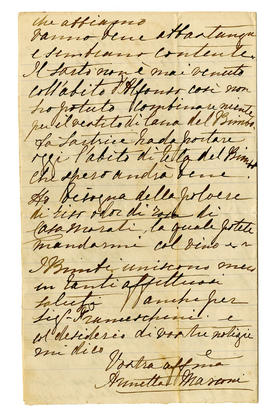 che abbiamo
vanno bene abbastanza
e sembrano contente.
Il sarto non è mai venuto
coll'abito d'Alfonso così non
ho potuto combinare niente
per il vestito di lana del Bimbo.
La Sartrice ha da portare
oggi l'abito di tela del Bimbo
che spero andrà bene
Ho bisogna della polvere
di riso di
Casa, la quale potete
mandarmi col vino e
I Bimbi uniscono meco
in tanti affettuosi
saluti anche per
Sig. Franceschini e
col desiderio di vostre notizie
mi dico
Vostra affma
Annetta Marconi